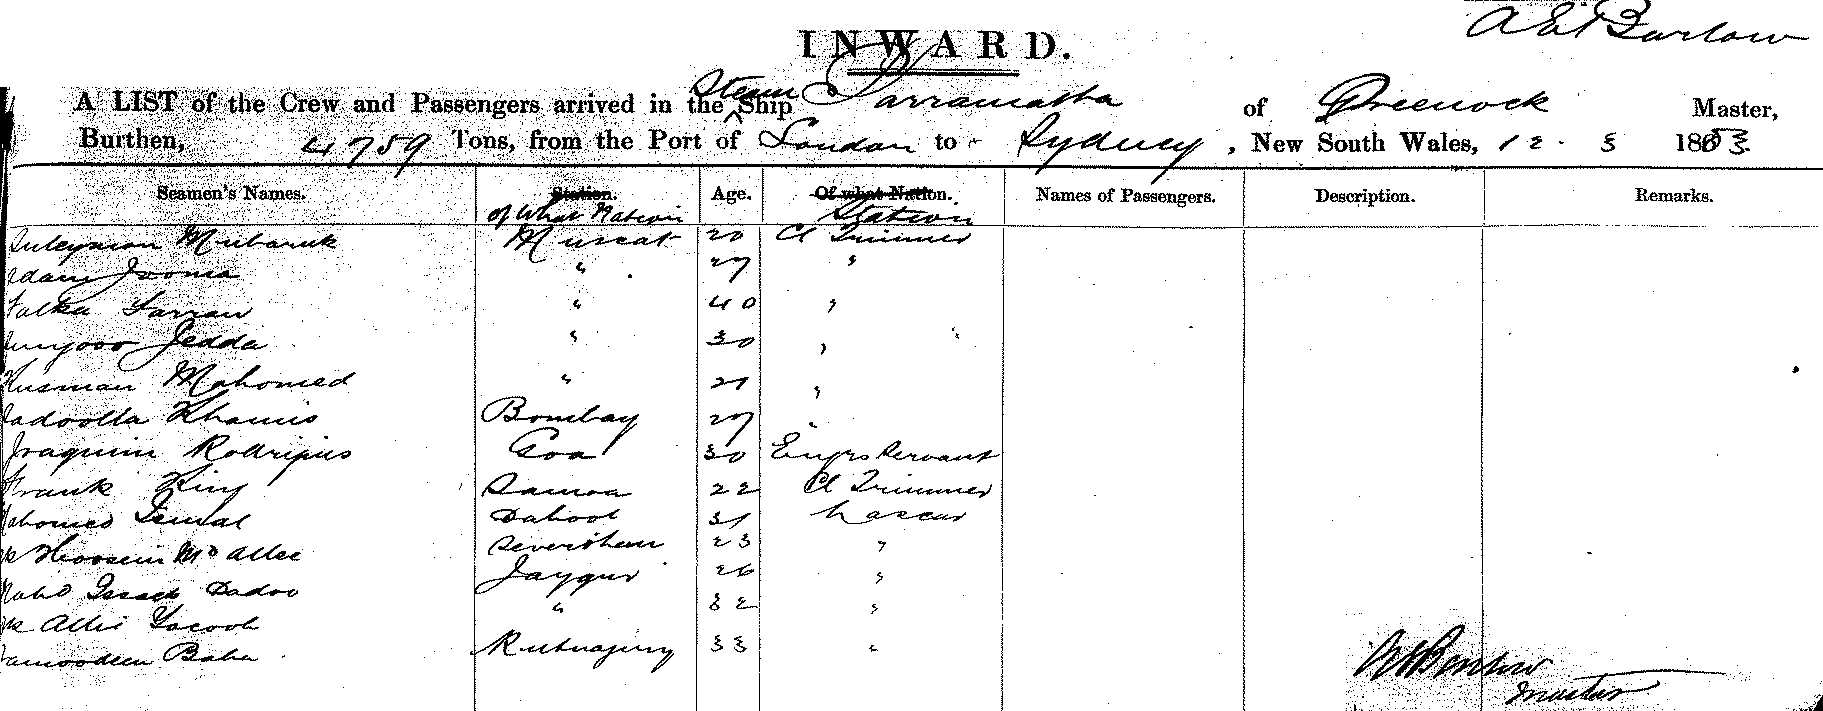 A E Barlow
INWARD.
A LIST of the Crew and Passengers arrived in the Steam Ship Parramatta of Greenock Master,
Burthen, 4759 Tons, from the Port of London to Sydney, New South Wales, 12. 3 1883
Seamen's Names. Station. Age. Of what Nation. Names of Passengers. Description. Remarks.
of what Nation Station
Suleyman Mubaruk Muscat 20 Cl Trimmer
Adam Jooma " 27 "
Farran " 40 "
Jedda " 30 "
Husman Mahomed " 21 "
Khamis Bombay 27 "
Joaquim Rodrigues Goa 30 Engrs Servant
Frank King Samoa 22 Cl Trimmer
Mahomed Dabool 31 Lascar
Hoosein Md Allee 23 "
Mahd Dadoo Jaygur 26 "
Allie Yacoob " 32 "
Baba Rutnagirry 33 "
Barlow
Master